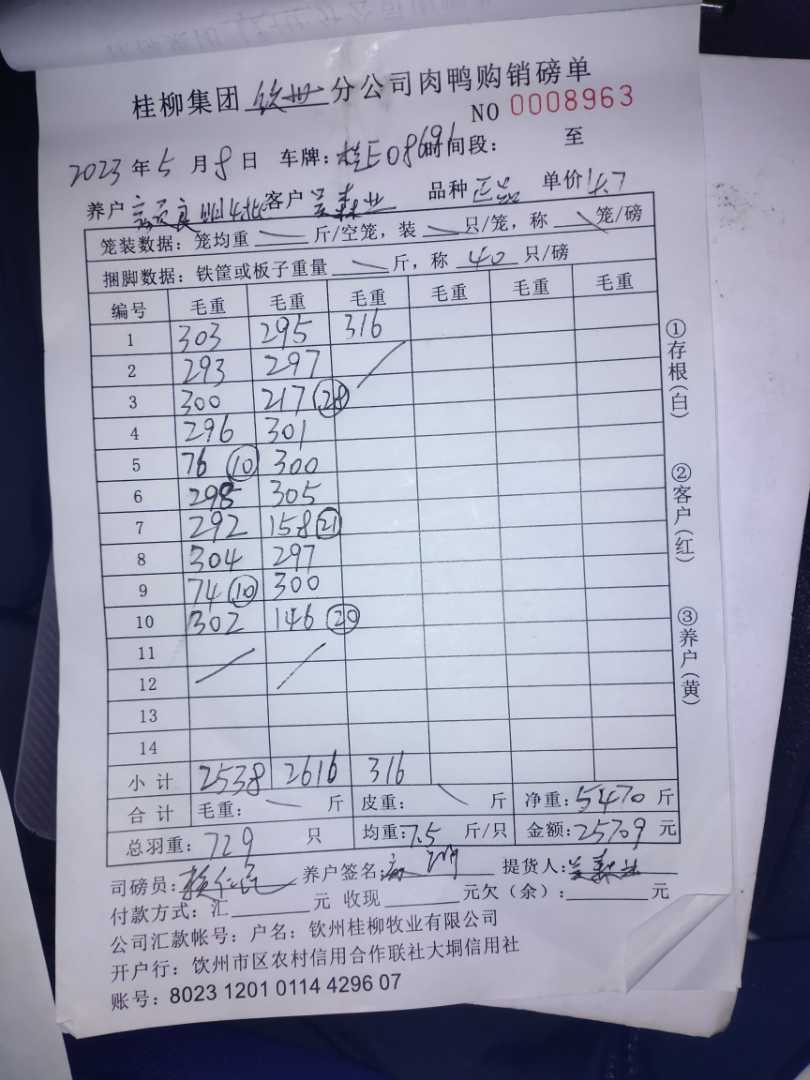 桂柳集团 钦州 分公司肉鸭购销磅单
NO 0008963
2023 年 5 月 8 日 车牌: 桂E08696 时间段: 至
养户 客户 吴森业 品种 正品 单价 4.7
笼装数据: 笼均重 斤/空笼, 装 只/笼, 称 笼/磅
捆脚数据: 铁筐或板子重量 斤, 称 40 只/磅
编号 毛重 毛重 毛重 毛重 毛重 毛重
1 303 295 316
2 293 297
3 300 217 (28)
4 296 301
5 76 (10) 300
6 298 305
7 292 158 (21)
8 304 297
9 74 (10) 300
10 302 146 (20)
11
12
13
14
小计 2538 2616 316
合计 毛重: 斤 皮重: 斤 净重: 5470 斤
总羽重: 729 只 均重: 7.5 斤/只 金额: 25709 元
司磅员: 养户签名: 提货人: 吴森业
付款方式: 汇 元 收现 元欠(余): 元
公司汇款帐号: 户名: 钦州桂柳牧业有限公司
开户行: 钦州市区农村信用合作联社大垌信用社
账号: 8023 1201 0114 4296 07
①存根(白)
②客户(红)
③养户(黄)